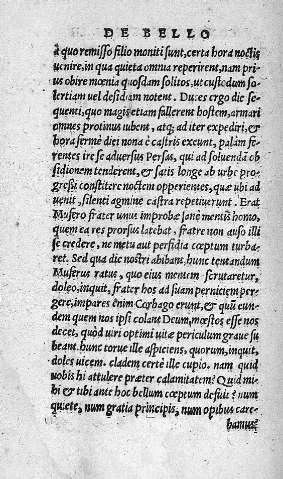 DE BELLO
à quo remisso filio moniti sunt, certa hora noctis
uenire, in qua quieta omnia reperirent, nam pri
us obire mœnia quosdam solitos, ut custodum so
lertiam uel desidiam notent. Duces ergo die se
quenti, quo magis etiam fallerent hostem, armari
omnes protinus iubent, atq; ad iter expediri, &
hora fermè diei nona è castris exeunt, palàm fe
rentes ire se aduersus Persas, qui ad soluendā ob
sidionem tenderent, & satis longe ab urbe pro-
gressi constitere noctem opperientes, quæ ubi ad
uenit, silenti agmine castra repetiuerunt. Erat
Musero frater unus improbæ sanè mentis homo,
quem ea res prorsus latebat, fratre non auso illi
se credere, ne metu aut perfidia cœptum turba-
ret. Sed qua die nostri abibant, hunc tentandum
Muserus ratus, quo eius mentem scrutaretur,
doleo, inquit, frater hos ad suam perniciem per-
gere, impares enim Corbago erunt, & quū eun-
dem quem nos ipsi colant Deum, mœstos esse nos
decet, quòd uiri optimi uitæ periculum graue su
beant. hunc torue ille aspiciens, quorum, inquit,
doles uicem. cladem certè ille cupio. nam quid
uobis hi attulere præter calamitatem? Quid mi-
hi & tibi ante hoc bellum cœptum desuit? num
quiete, num gratia principis, num opibus care-
bamus?